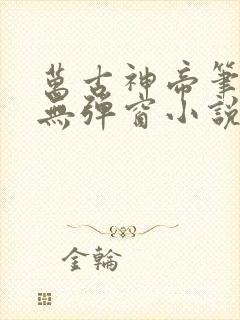 萬古神帝筆
無彈窗小說
金輪